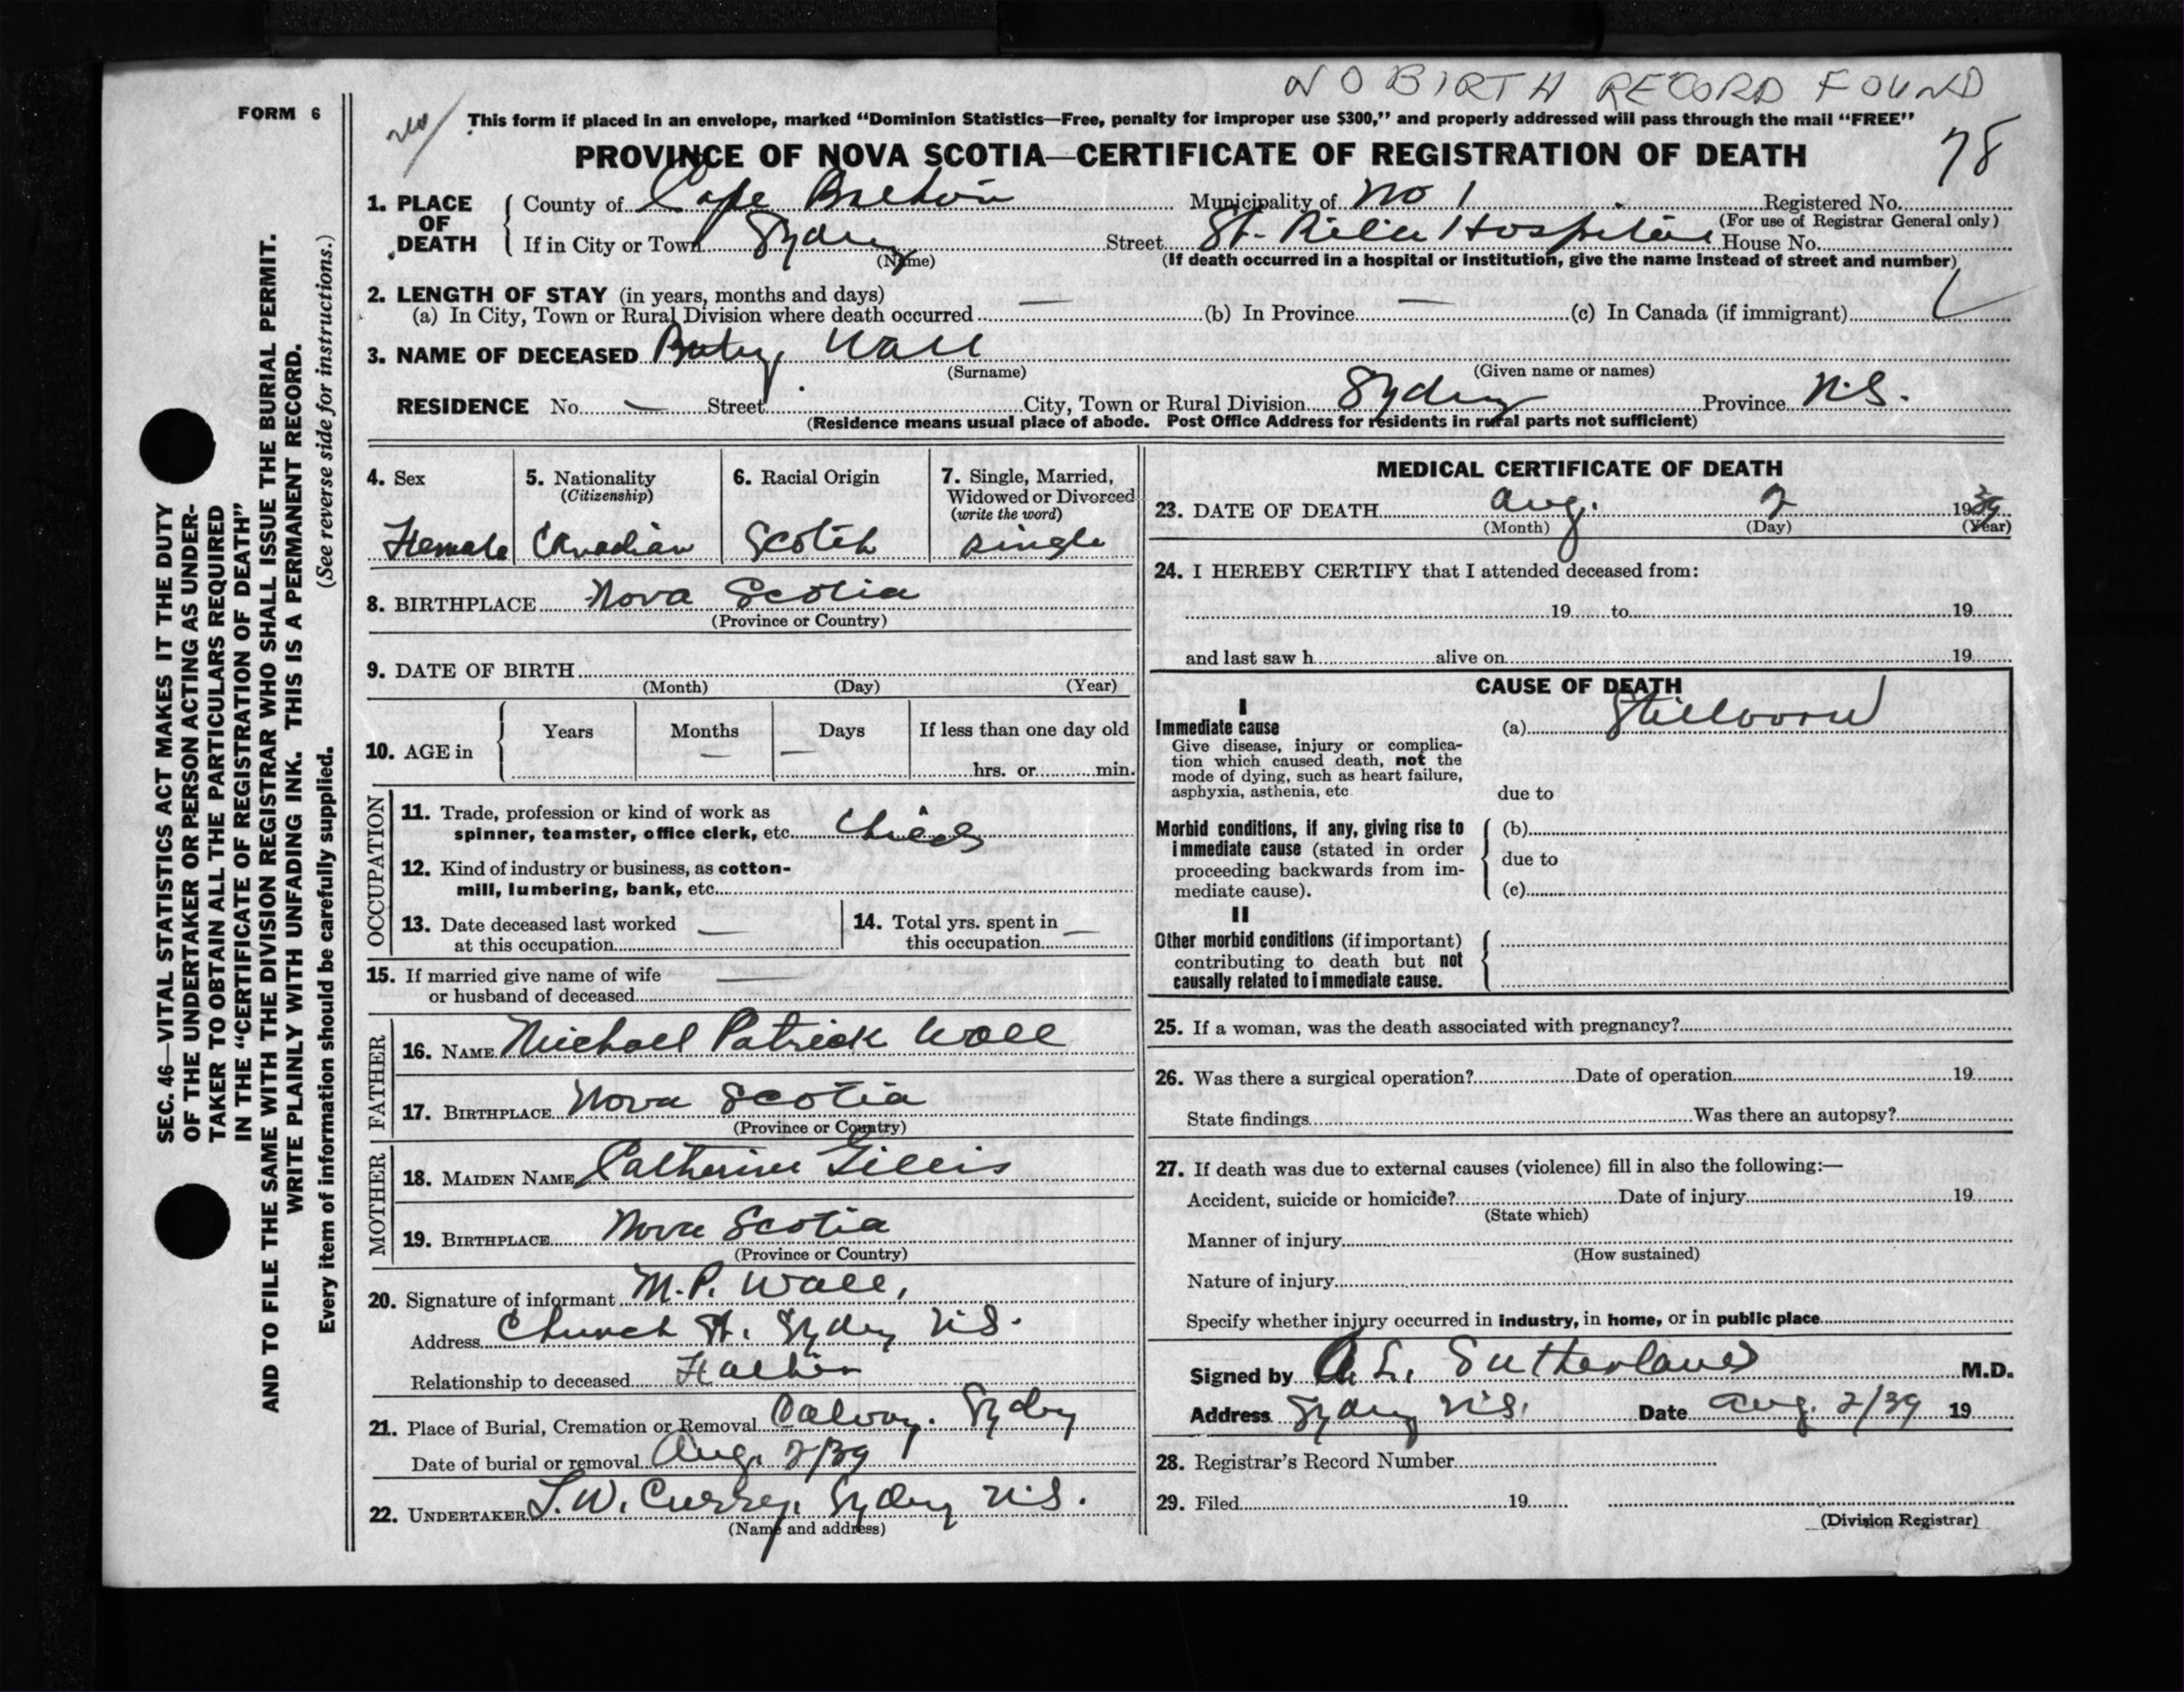 NO BIRTH RECORD FOUND
FORM 6
This form if placed in an envelope, marked “Dominion Statistics—Free, penalty for improper use $300,” and properly addressed will pass through the mail “FREE”
78
PROVINCE OF NOVA SCOTIA—CERTIFICATE OF REGISTRATION OF DEATH
1. PLACE OF DEATH
County of Cape Breton Municipality of No 1 Registered No.
(For use of Registrar General only)
If in City or Town Sydney Street St. Rita Hospital House No.
(Name) (If death occurred in a hospital or institution, give the name instead of street and number)
2. LENGTH OF STAY (in years, months and days)
(a) In City, Town or Rural Division where death occurred — (b) In Province — (c) In Canada (if immigrant)
3. NAME OF DECEASED Baby, Wall
(Surname) (Given name or names)
RESIDENCE No. — Street City, Town or Rural Division Sydney Province N.S.
(Residence means usual place of abode. Post Office Address for residents in rural parts not sufficient)
4. Sex 5. Nationality (Citizenship) 6. Racial Origin 7. Single, Married, Widowed or Divorced (write the word)
Female Canadian Scotch single
8. BIRTHPLACE Nova Scotia
(Province or Country)
9. DATE OF BIRTH
(Month) (Day) (Year)
10. AGE in
Years Months Days If less than one day old
— —
hrs. or min.
OCCUPATION
11. Trade, profession or kind of work as
spinner, teamster, office clerk, etc. Child
12. Kind of industry or business, as cotton-
mill, lumbering, bank, etc.
13. Date deceased last worked —
at this occupation
14. Total yrs. spent in —
this occupation
15. If married give name of wife —
or husband of deceased
FATHER
16. NAME Michael Patrick Wall
17. BIRTHPLACE Nova Scotia
(Province or Country)
MOTHER
18. MAIDEN NAME Catherine Gillis
19. BIRTHPLACE Nova Scotia
(Province or Country)
20. Signature of informant M.P. Wall,
Address Church St. Sydney N.S.
Relationship to deceased Father
21. Place of Burial, Cremation or Removal Calvary. Sydney
Date of burial or removal Aug. 2/39
22. UNDERTAKER T.W. Currey, Sydney N.S.
(Name and address)
MEDICAL CERTIFICATE OF DEATH
23. DATE OF DEATH Aug. 2 1939
(Month) (Day) (Year)
24. I HEREBY CERTIFY that I attended deceased from:
19 to 19
and last saw h alive on 19
CAUSE OF DEATH
I
Immediate cause (a) Stillborn
Give disease, injury or complica-
tion which caused death, not the
mode of dying, such as heart failure,
asphyxia, asthenia, etc.
due to
Morbid conditions, if any, giving rise to (b)
immediate cause (stated in order
due to
proceeding backwards from im-
mediate cause). (c)
II
Other morbid conditions (if important)
contributing to death but not
causally related to immediate cause.
25. If a woman, was the death associated with pregnancy?
26. Was there a surgical operation? Date of operation 19
State findings Was there an autopsy?
27. If death was due to external causes (violence) fill in also the following:—
Accident, suicide or homicide? Date of injury 19
(State which)
Manner of injury
(How sustained)
Nature of injury
Specify whether injury occurred in industry, in home, or in public place
Signed by A. L. Sutherland M.D.
Address Sydney N.S. Date Aug. 2/39 19
28. Registrar's Record Number
29. Filed 19
(Division Registrar)
SEC. 46—VITAL STATISTICS ACT MAKES IT THE DUTY
OF THE UNDERTAKER OR PERSON ACTING AS UNDER-
TAKER TO OBTAIN ALL THE PARTICULARS REQUIRED
IN THE “CERTIFICATE OF REGISTRATION OF DEATH”
AND TO FILE THE SAME WITH THE DIVISION REGISTRAR WHO SHALL ISSUE THE BURIAL PERMIT.
WRITE PLAINLY WITH UNFADING INK. THIS IS A PERMANENT RECORD.
Every item of information should be carefully supplied. (See reverse side for instructions.)